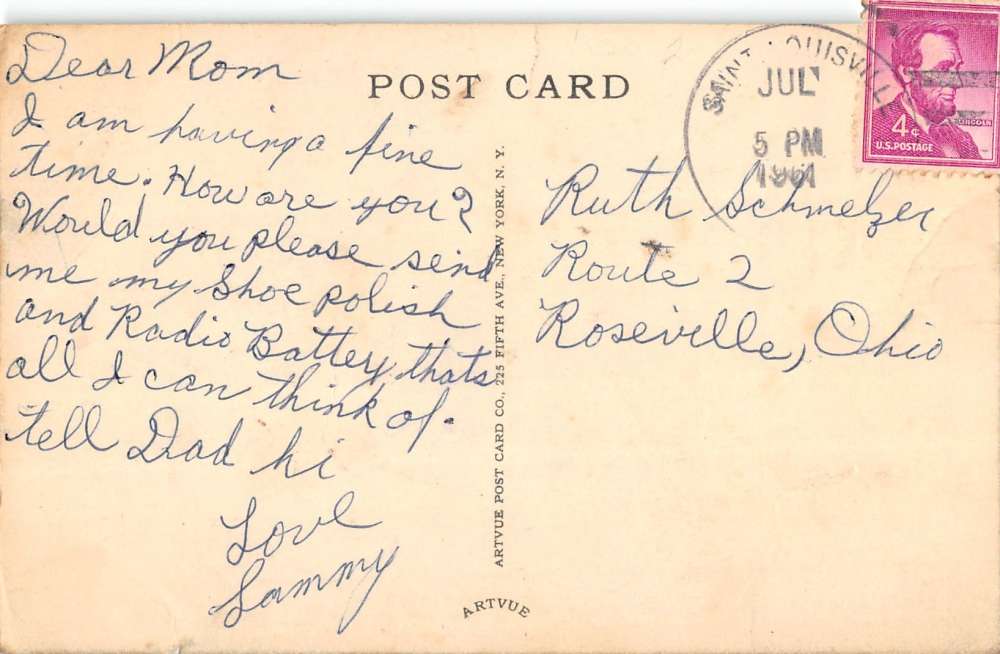 Dear Mom
I am having a fine
time. How are you?
Would you please send
me my Shoe polish
and Radio Battery, thats
all I can think of.
tell Dad hi
Love
Sammy
POST CARD
ARTVUE POST CARD CO., 225 FIFTH AVE., NEW YORK, N. Y.
ARTVUE
SAINT LOUISVILL
JUL
5 PM
1961
4¢
LINCOLN
U.S. POSTAGE
Ruth Schmelzer
Route 2
Roseville, Ohio